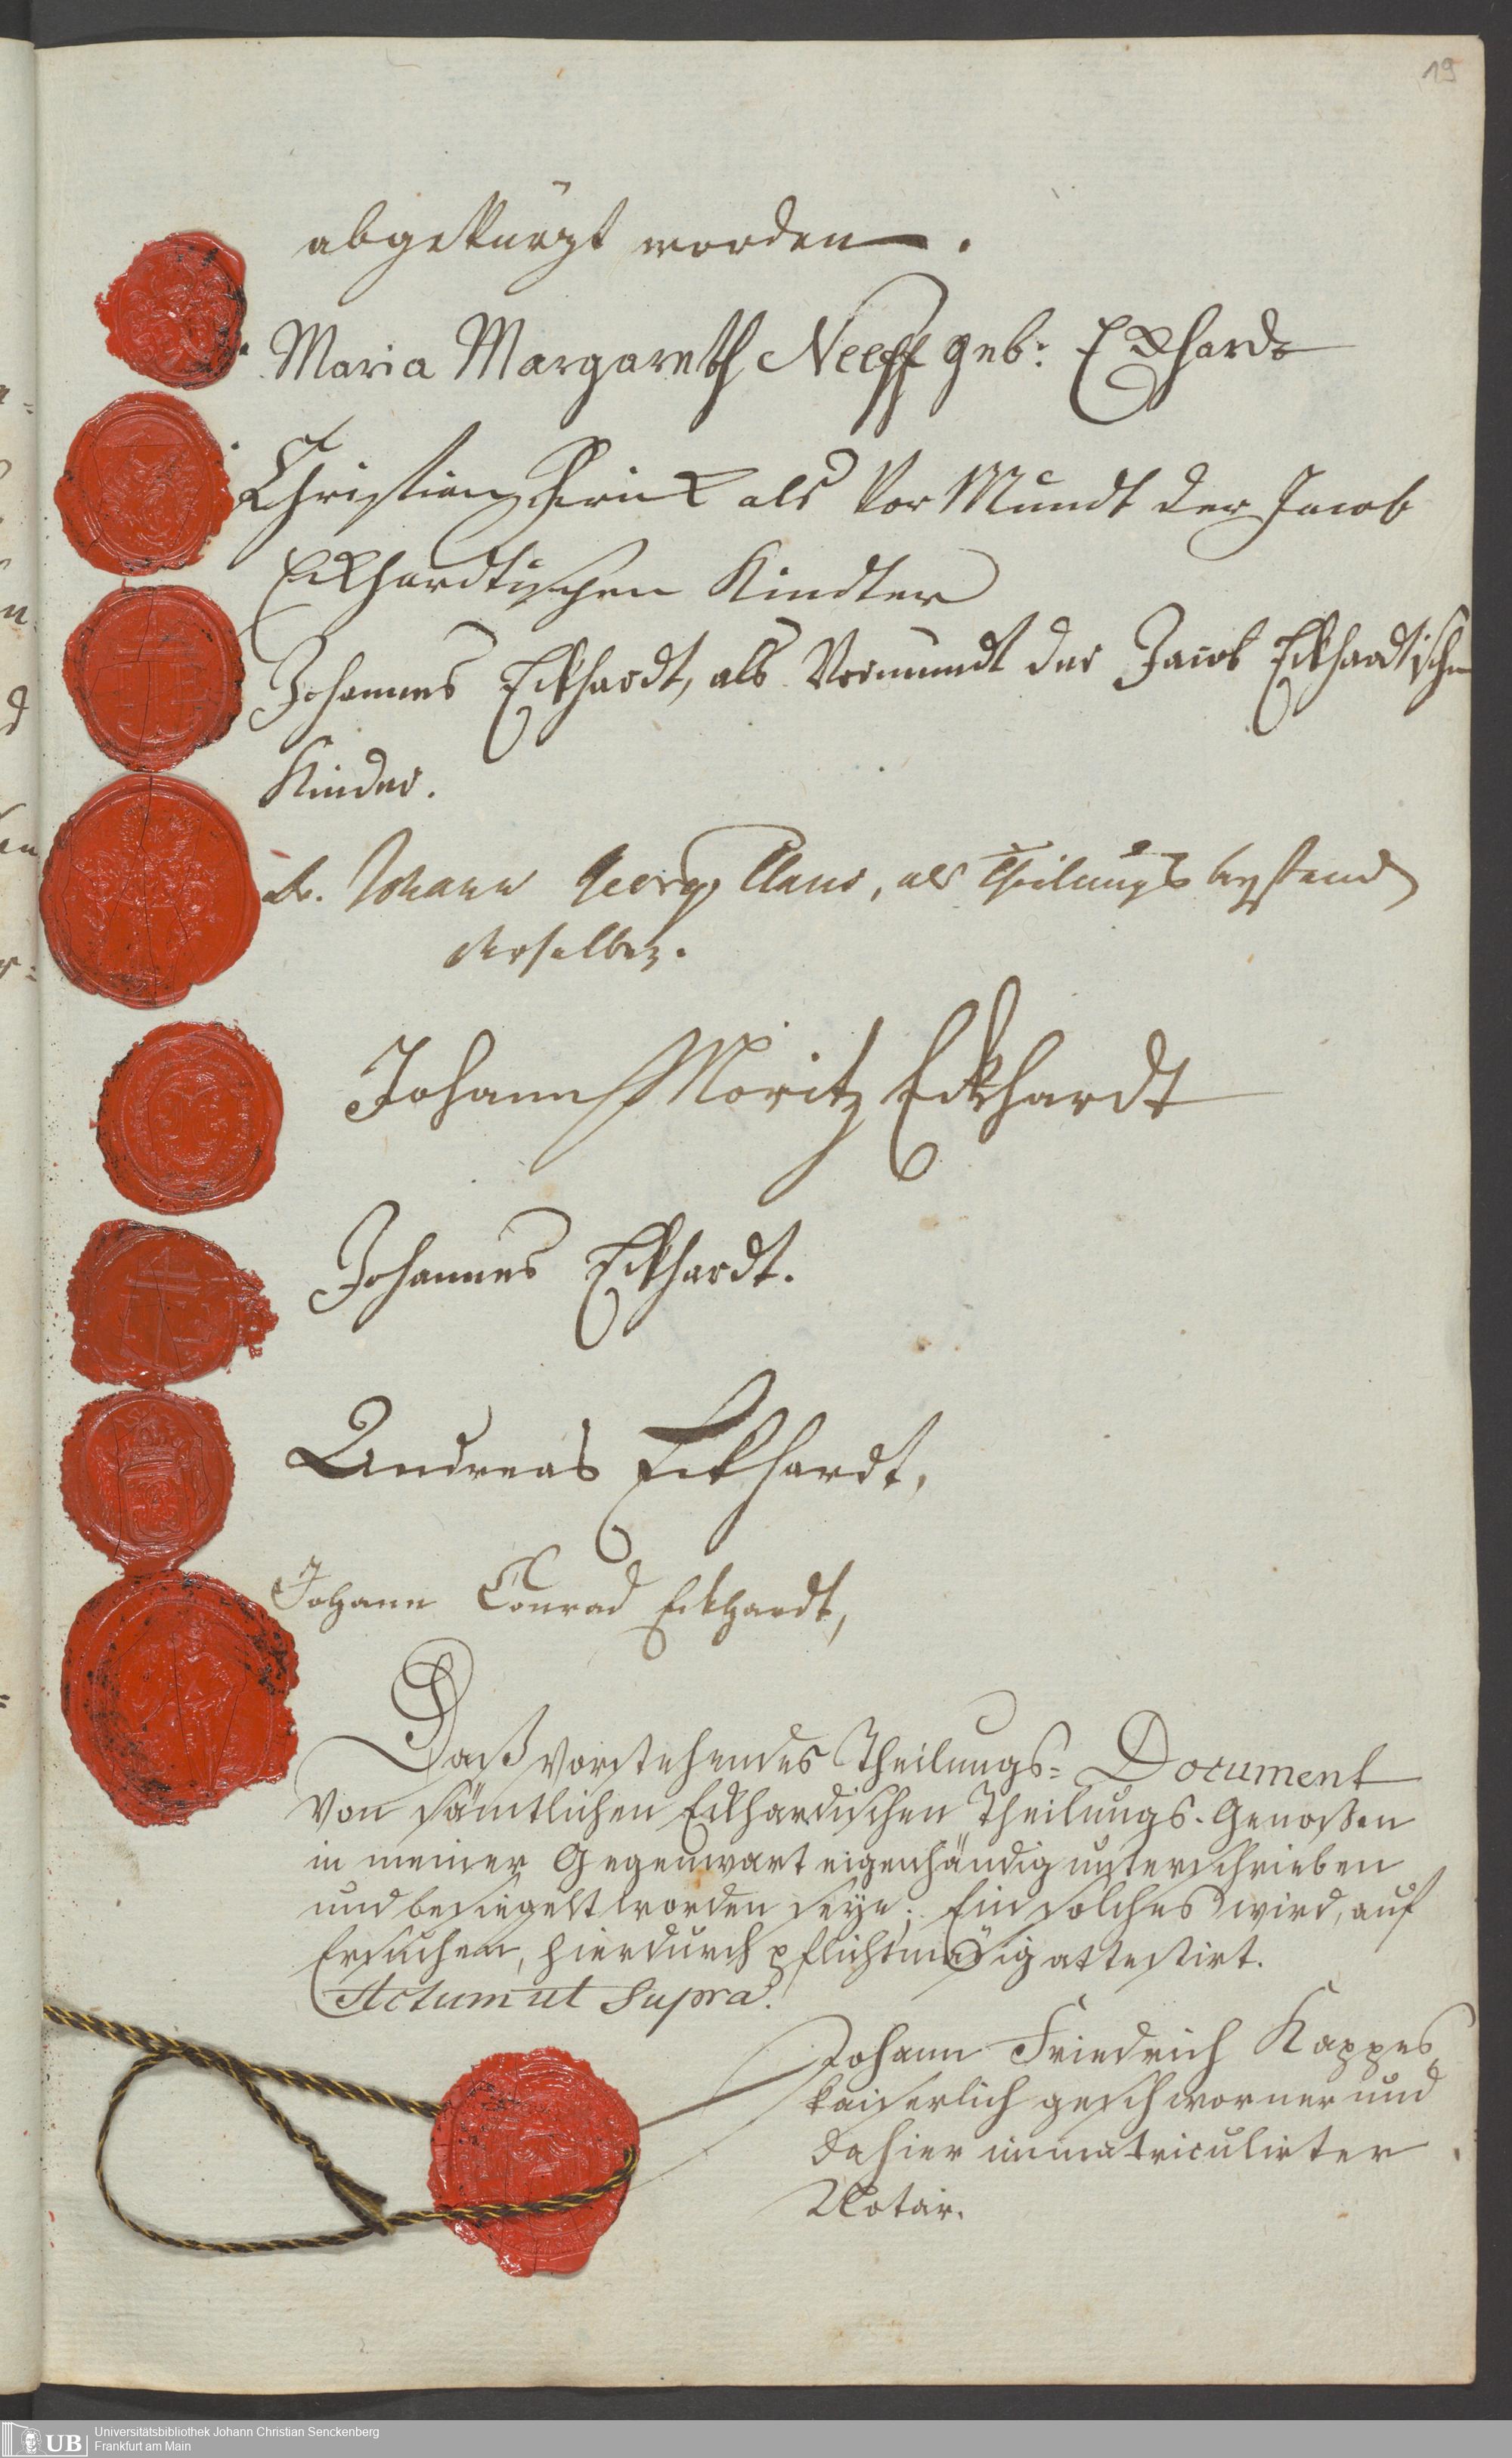 19
abgekürzt worden.
Maria Margareth Neeff geb: Eckhardt
Christian als Vor Mundt der Jacob
Eckhardtischen Kindter
Johannes Eckhardt, als Vormundt der Jacob Eckhardtischen
Kinder.
Dr. Johann Georg Claus, als Theilungs beystand
derselben.
Johann Moritz Eckhardt
Johannes Eckhardt.
Andreas Eckhardt,
Johann Conrad Eckhardt,
Daß vorstehendes Theilungs= Document
von sämtlichen Eckhardischen Theilungs-Genoßen
in meiner Gegenwart eigenhändig unterschrieben
und besiegelt worden seye; Ein solches wird, auf
Ersuchen, hierdurch pflichtmäsig attestirt.
Actum ut Supra.
Johann Friedrich Kappes
kaiserlich geschworner und
dahier immatriculirter
Notar.
UB
Universitätsbibliothek Johann Christian Senckenberg
Frankfurt am Main